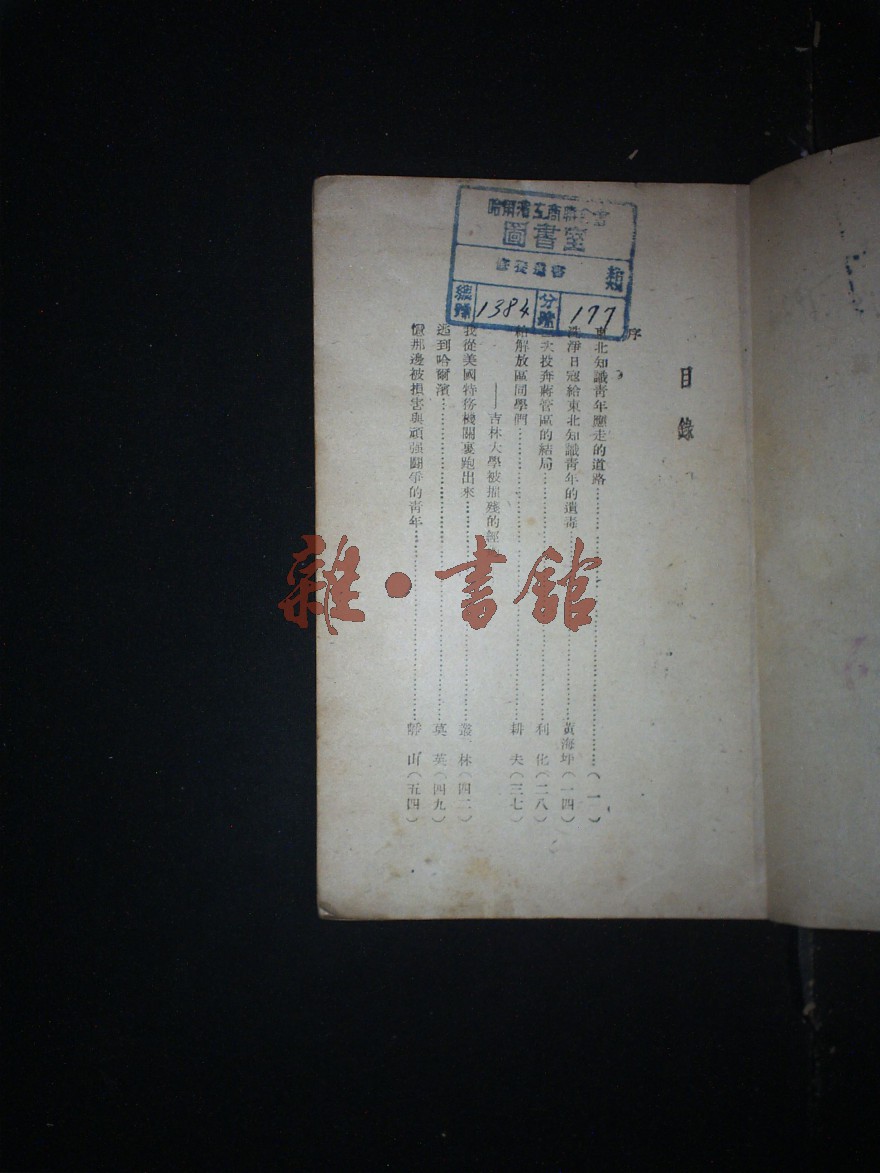 目錄
序
東北知識青年應走的道路……(一)
洗淨日寇給東北知識青年的遺毒……黃海坪(一四)
次投奔蔣管區的結局……利化(二八)
給解放區同學們……耕夫(三七)
——吉林大學被摧殘的經
我從美國特務機關裏跑出來……叢林(四二)
逃到哈爾濱……莫英(四九)
憶那邊被損害與頑强鬪爭的青年……山(五四)
哈爾濱工商聯合會
圖書室
類
總號 1384 分號 177
雜·書館